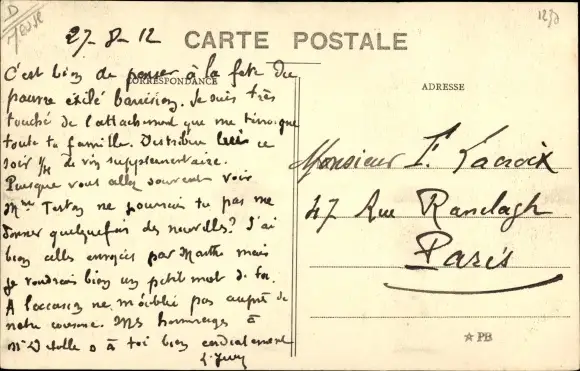 D
Meuse
1230
27-8-12
CARTE POSTALE
CORRESPONDANCE
ADRESSE
C'est bien de penser à la fete du
pauvre exilé barrisien. Je suis très
touché de l'attachement que me témoigne
toute ta famille. Distribue leur ce
soir 1/4 de vin supplementaire.
Puisque vous allez souvent voir
Mme ne pourrais tu pas me
donner quelquefois des nouvelles? J'ai
bien celles envoyées par Marthe mais
je voudrais bien un petit mot de toi.
A l'occasion ne m'oublie pas auprès de
notre cousine. Mes hommages à
Mme & à toi bien cordialement
Monsieur F. Lacroix
47 Rue Ranelagh
Paris
PB